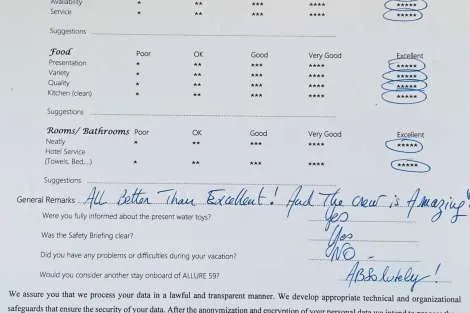 Availability * ** *** **** *****
Service * ** *** **** *****
Suggestions
Food Poor OK Good Very Good Excellent
Presentation * ** *** **** *****
Variety * ** *** **** *****
Quality * ** *** **** *****
Kitchen (clean) * ** *** **** *****
Suggestions
Rooms/ Bathrooms Poor OK Good Very Good Excellent
Neatly * ** *** **** *****
Hotel Service
(Towels, Bed,..) * ** *** **** *****
Suggestions
General Remarks All Better Than Excellent! And The crew is Amazing!
Were you fully informed about the present water toys? Yes
Was the Safety Briefing clear? Yes
Did you have any problems or difficulties during your vacation? NO
Would you consider another stay onboard of ALLURE 59? ABSolutely!
We assure you that we process your data in a lawful and transparent manner. We develop appropriate technical and organizational
safeguards that ensure the security of your data. After the anonymization and encryption of your personal data we intend to process the